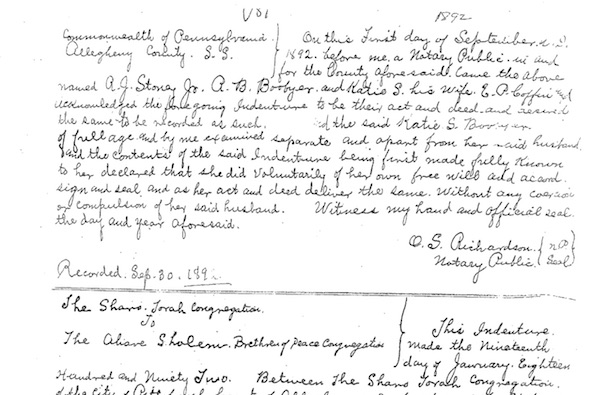 V81
1892
Commonwealth of Pennsylvania
Allegheny County. S.S.
On this First day of September. A.D.
1892. before me, a Notary Public. in and
for the County aforesaid. Came the above
named A.J. Stoney Jr. A. B. Boobyer. and Katie S. his Wife. E. P. Coffin and
acknowledged the foregoing Indenture to be their act and deed. and desired
the same to be recorded as such. and the said Katie S. Boobyer.
of full age and by me examined separate and apart from her said husband.
and the contents of the said Indenture being first made fully known
to her declared that she did Voluntarily of her own free will and accord.
sign and seal and as her act and deed deliver the same. Without any coercion
or compulsion of her said husband. Witness my hand and official seal
the day and year aforesaid.
O. S. Richardson. N.P.
Notary Public. Seal
Recorded. Sep. 30. 1892.
The Share. Torah Congregation.
To
The Ahave Sholem. Brethren of Peace Congregation
This Indenture.
made the Nineteenth
day of January. Eighteen
Hundred and Ninety Two. Between The Share Torah Congregation.
of the City of